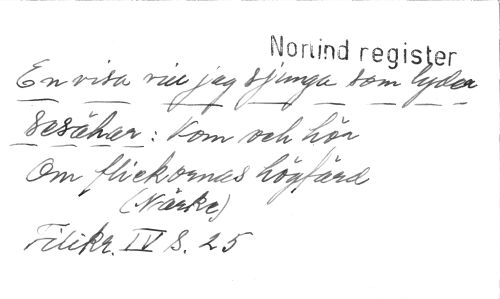 Norlind register
En visa vill jag sjunga som lyder
sesåhär: Kom och hör
Om flickornas högfärd
(Närke)
Filikr. IV S. 25